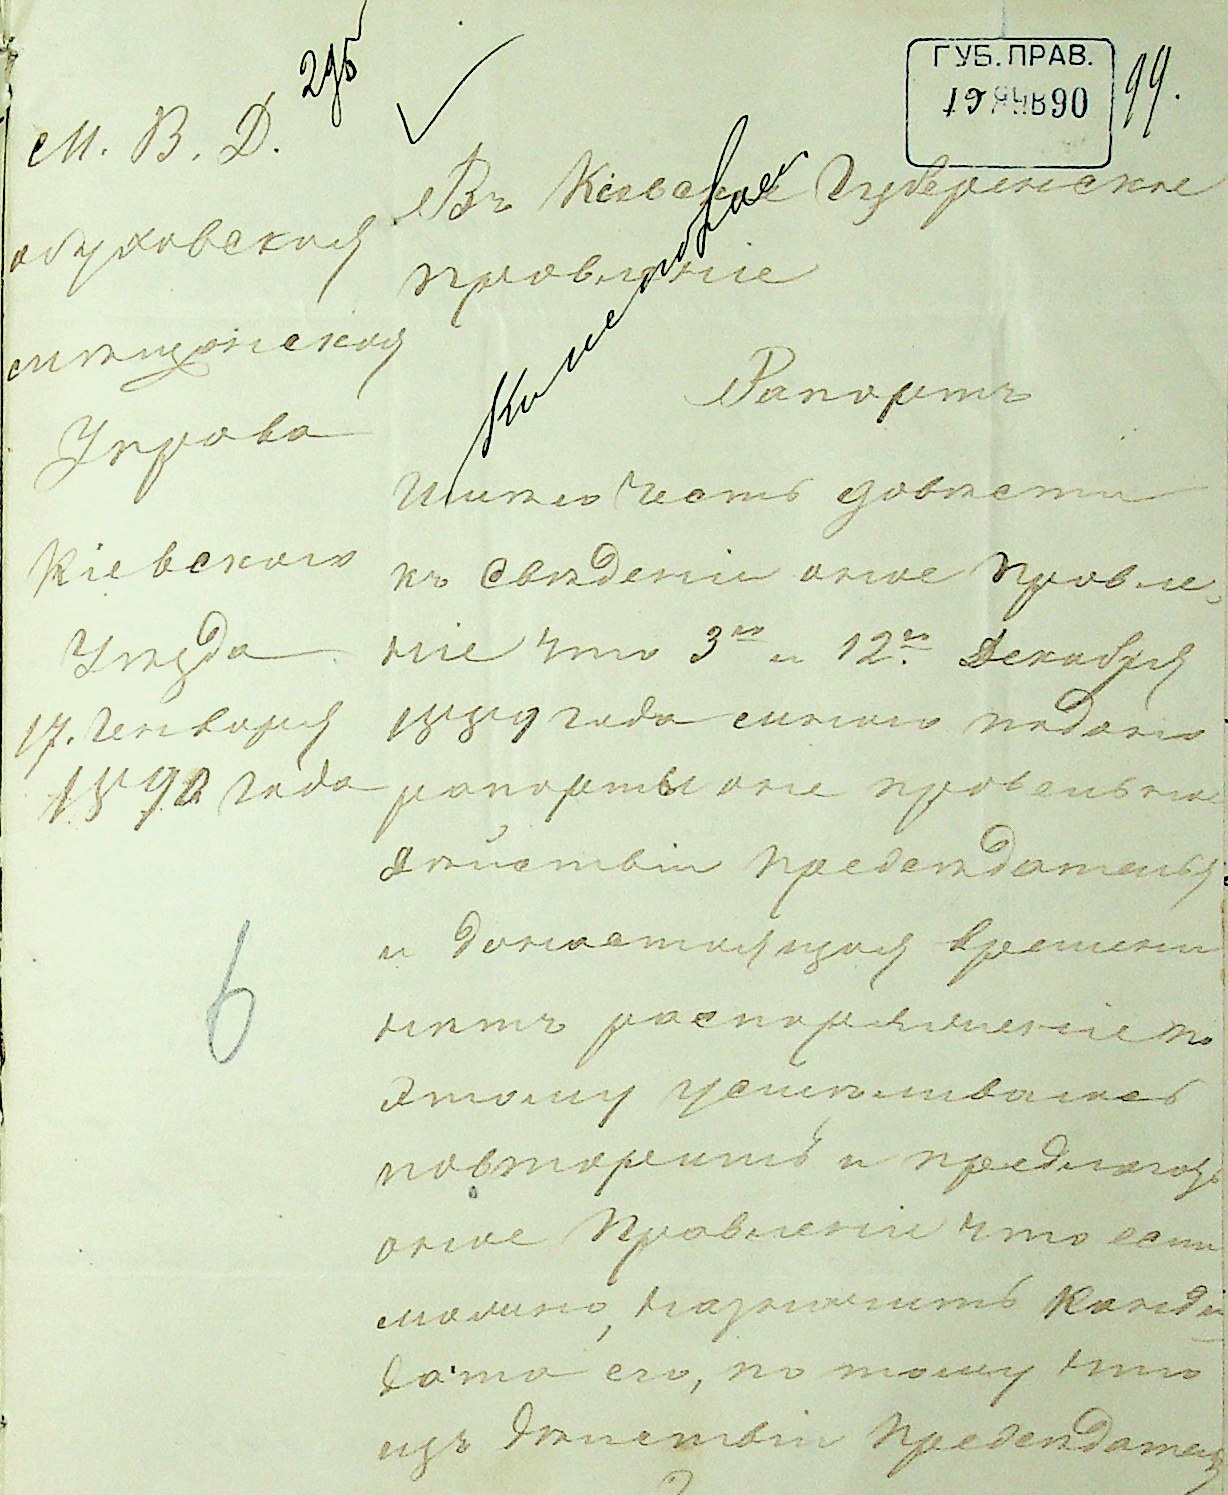 295
ГУБ. ПРАВ.
19 ЯНВ 90
99.
М. В. Д.
обуховская
мѣщанская
Управа
Кіевского
Уѣзда
17. Генваря
1890 года
6
Въ Кіевское Губернское
правленіе
Рапортъ
Имѣю честь довѣсти
къ Сведеніи оное Правле-
ніе что 3го и 12го Декабря
1889 года мною подано
рапорты оне правельное
дѣйствіи председателя
и донастоящая времени
нѣтъ распоряженіе по
этому
повторить и предлагая
оное Правленіи что если
можно, назначить Канди
дата его, по тому что
изъ дѣиствіи Председател